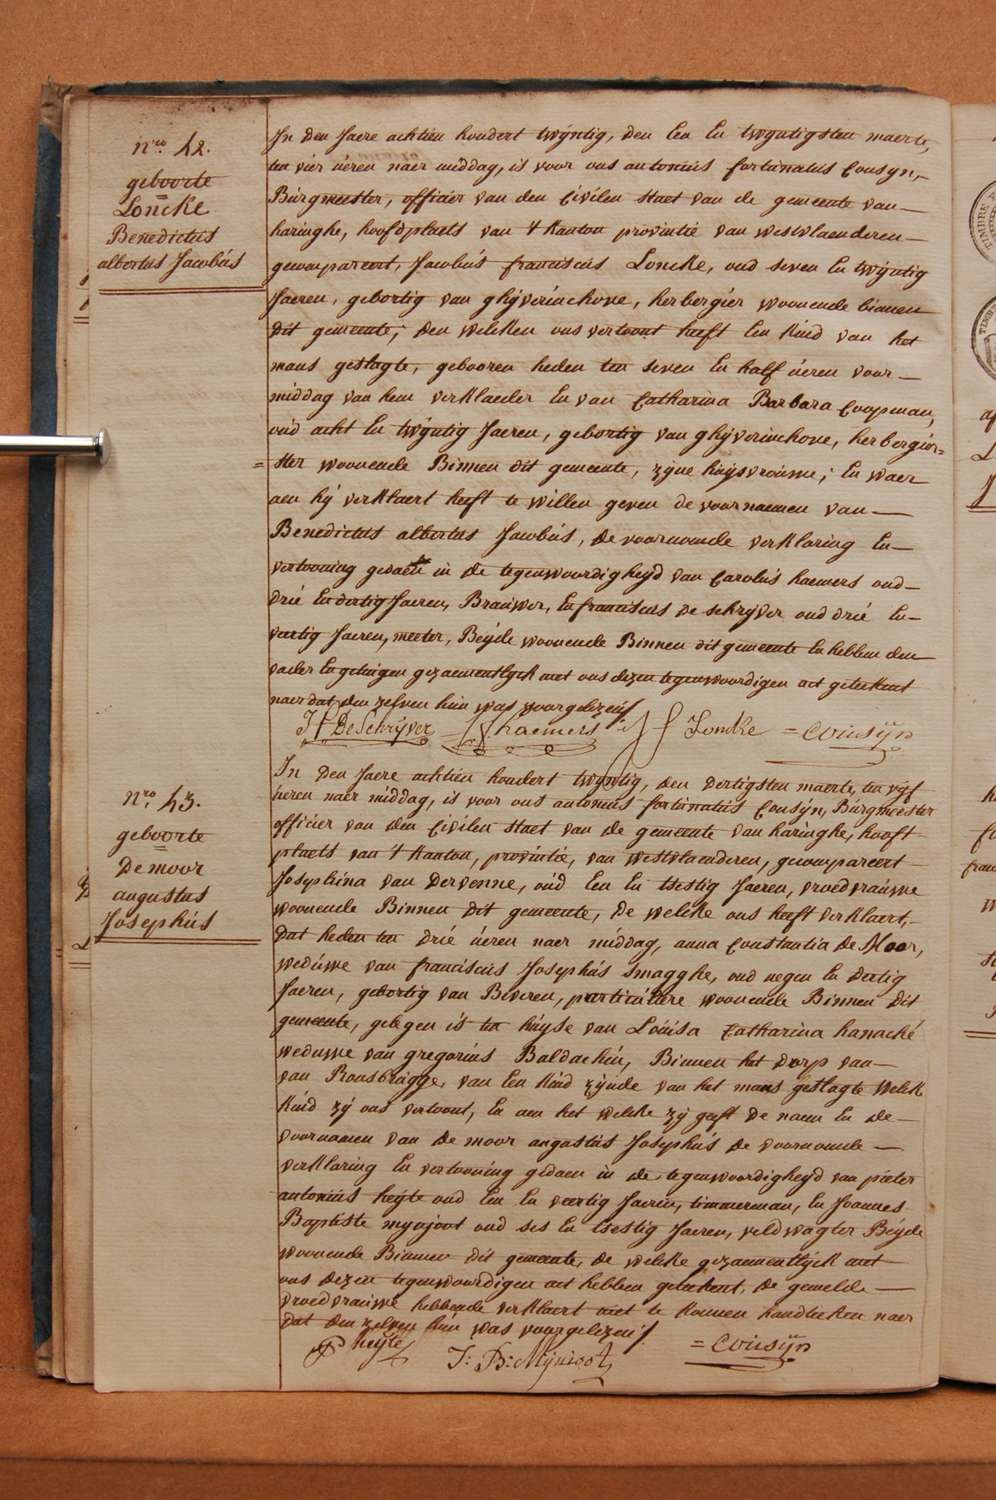 nro 42.
geboorte
Loncke
Benedictus
albertus Jacobús
In den Jaere achtien hondert twÿntig, den Een En twÿntigsten maerte,
ten vier úeren naer middag, is voor ons antonius fortunatus Cousÿn,
Búrgmeester, officier van den Civilen Staet van de gemeente van
haringhe, hoofdplaets van 't Kanton provintie van westvlaenderen
gecompareert, Jacobús franciscus Loncke, oud seven En twÿntig
Jaeren, gebortig van ghÿverinchove, herbergier woonende binnen
dit gemeente; den welcken ons vertoont heeft Een Kind van het
mans geslagte, gebooren heden ten seven En half úeren voor
middag van hem verklaeder En van Catharina Barbara Coopman,
oúd acht En twÿntig Jaeren, gebortig van ghÿverinchove, herbergier=
=ster woonende Binnen dit gemeente, zÿne húÿsvroúwe; En waer
aen hÿ verklaert heeft te willen geven de voornaemen van
Benedictus albertus Jacobús, de voornoemde verklaring En
vertooning gedaen in de tegenwoordigheÿd van Carolus haemers oud
drie En dertig Jaeren, Braúwer, En franciscus de schrÿver oud drie En
veertig Jaeren, meeter, Beÿde woonende Binnen dit gemeente En hebben den
vader En getúigen gezaementlÿck met ons dezen tegenwoordigen act geteekent
naer dat den zelven hún was voorgelezen
J F DeSchrÿver haemers J f Loncke =Cousÿn
nro 43.
geboorte
De moor
augustus
Josephús
In den Jaere achtien hondert twÿntig, den dertigsten maerte, ten vÿf
úeren naer middag, is voor ons antonius fortunatus Cousÿn, Búrgmeester
officier van den Civilen Staet van de gemeente van haringhe, hooft
plaets van 't Kanton, provintie, van westvlaenderen, gecompareert
Josephina van Dervenne, oúd Een En tsestig Jaeren, vroedvraúwe
woonende Binnen dit gemeente, de welcke ons heeft verklaert,
dat heden ten drie úeren naer middag, anna Constantia de Moor,
wedúwe van franciscus Josephús Smagghe, oud negen En dertig
Jaeren, gebortig van Beveren, particúliere woonende Binnen dit
gemeente, gelegen is ten húÿse van Loúisa Catharina hanaché
wedúwe van gregoriús Baldachin, Binnen het dorp van
van Rousbrúgge, van Een Kind zÿnde van het mans geslagte welck
Kind zÿ ons vertoont, En aen het welcke zÿ geeft de naem En de
voornaemen van De moor augustús Josephús de voornoemde
verklaring En vertooning gedaen in de tegenwoordigheÿd van pieter
antoniús heÿte oud Een En veertig Jaeren, timmerman, En Joannes
Baptiste mynjoot oud ses En tsestig Jaeren, veldwagter Beÿde
woonende Binnen dit gemeente, de welcke gezaementlÿck met
ons dezen tegenwoordigen act hebben geteekent, de gemelde
vroedvraúwe hebbende verklaert niet te konnen handteeken naer
dat den zelven hún was voorgelezen
P heÿte J: B: Mÿnioot =Cousÿn